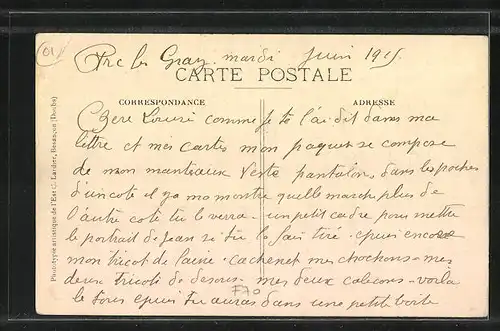 (01)
Arc les Gray. mardi Juin 1915.
CARTE POSTALE
CORRESPONDANCE
ADRESSE
Chere Louise comme je té l'ai dit dans ma
lettre et mes cartes mon paquet se compose
de mon manteaux veste pantalon, dans les poches
d'un coté il y a ma montre quelle march plus de
l'autre coté tu le verra - un petit cadre pour mettre
le portrait de Jean si tu la fait tiré - epuis encore
mon tricot de laine - cachenet mes chochons - mes
deux tricots de desous - mes deux caleçons - voila
le tous epuis tu auras dans une petite boite
F70
Phototypie artistique de l'Est C. Lardier, Besançon (Doubs)